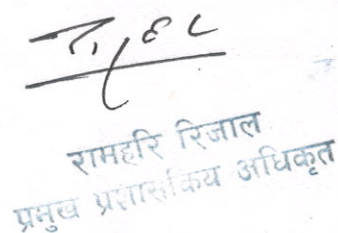 रामहरि रिजाल
प्रमुख प्रशासकिय अधिकृत